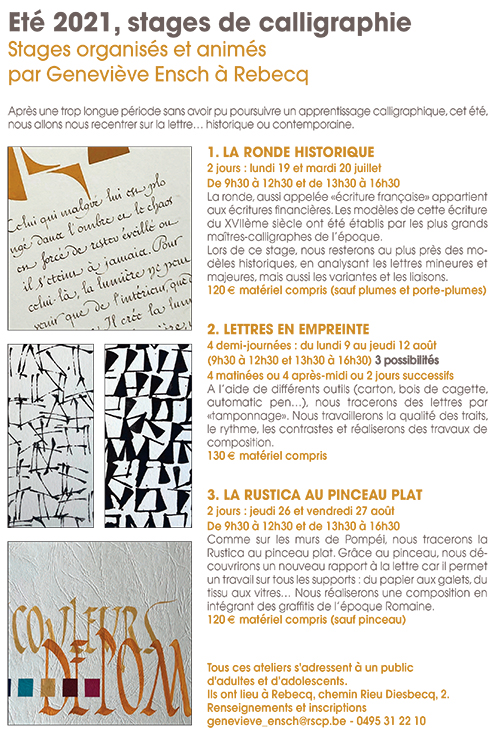 Eté 2021, stages de calligraphie
Stages organisés et animés
par Geneviève Ensch à Rebecq
Après une trop longue période sans avoir pu poursuivre un apprentissage calligraphique, cet été,
nous allons nous recentrer sur la lettre... historique ou contemporaine.
1. LA RONDE HISTORIQUE
2 jours : lundi 19 et mardi 20 juillet
De 9h30 à 12h30 et de 13h30 à 16h30
La ronde, aussi appelée «écriture française» appartient
aux écritures financières. Les modèles de cette écriture
du XVIIème siècle ont été établis par les plus grands
maîtres-calligraphes de l'époque.
Lors de ce stage, nous resterons au plus près des mo-
dèles historiques, en analysant les lettres mineures et
majeures, mais aussi les variantes et les liaisons.
120 € matériel compris (sauf plumes et porte-plumes)
Celui qui malgré lui est plo
ngé dans l'ombre et le chaos
en force de rester éveillé ou
il s'éteint à jamais. Pour
celui-là, la lumière ne peut
venir que de l'intérieur, que d
Il crée la lum
2. LETTRES EN EMPREINTE
4 demi-journées : du lundi 9 au jeudi 12 août
(9h30 à 12h30 et 13h30 à 16h30) 3 possibilités
4 matinées ou 4 après-midi ou 2 jours successifs
A l'aide de différents outils (carton, bois de cagette,
automatic pen...), nous tracerons des lettres par
«tamponnage». Nous travaillerons la qualité des traits,
le rythme, les contrastes et réaliserons des travaux de
composition.
130 € matériel compris
3. LA RUSTICA AU PINCEAU PLAT
2 jours : jeudi 26 et vendredi 27 août
De 9h30 à 12h30 et de 13h30 à 16h30
Comme sur les murs de Pompéi, nous tracerons la
Rustica au pinceau plat. Grâce au pinceau, nous dé-
couvrirons un nouveau rapport à la lettre car il permet
un travail sur tous les supports : du papier aux galets, du
tissu aux vitres... Nous réaliserons une composition en
intégrant des graffitis de l'époque Romaine.
120 € matériel compris (sauf pinceau)
COULEURS
DE POM
Tous ces ateliers s'adressent à un public
d'adultes et d'adolescents.
Ils ont lieu à Rebecq, chemin Rieu Diesbecq, 2.
Renseignements et inscriptions
genevieve_ensch@rscp.be - 0495 31 22 10